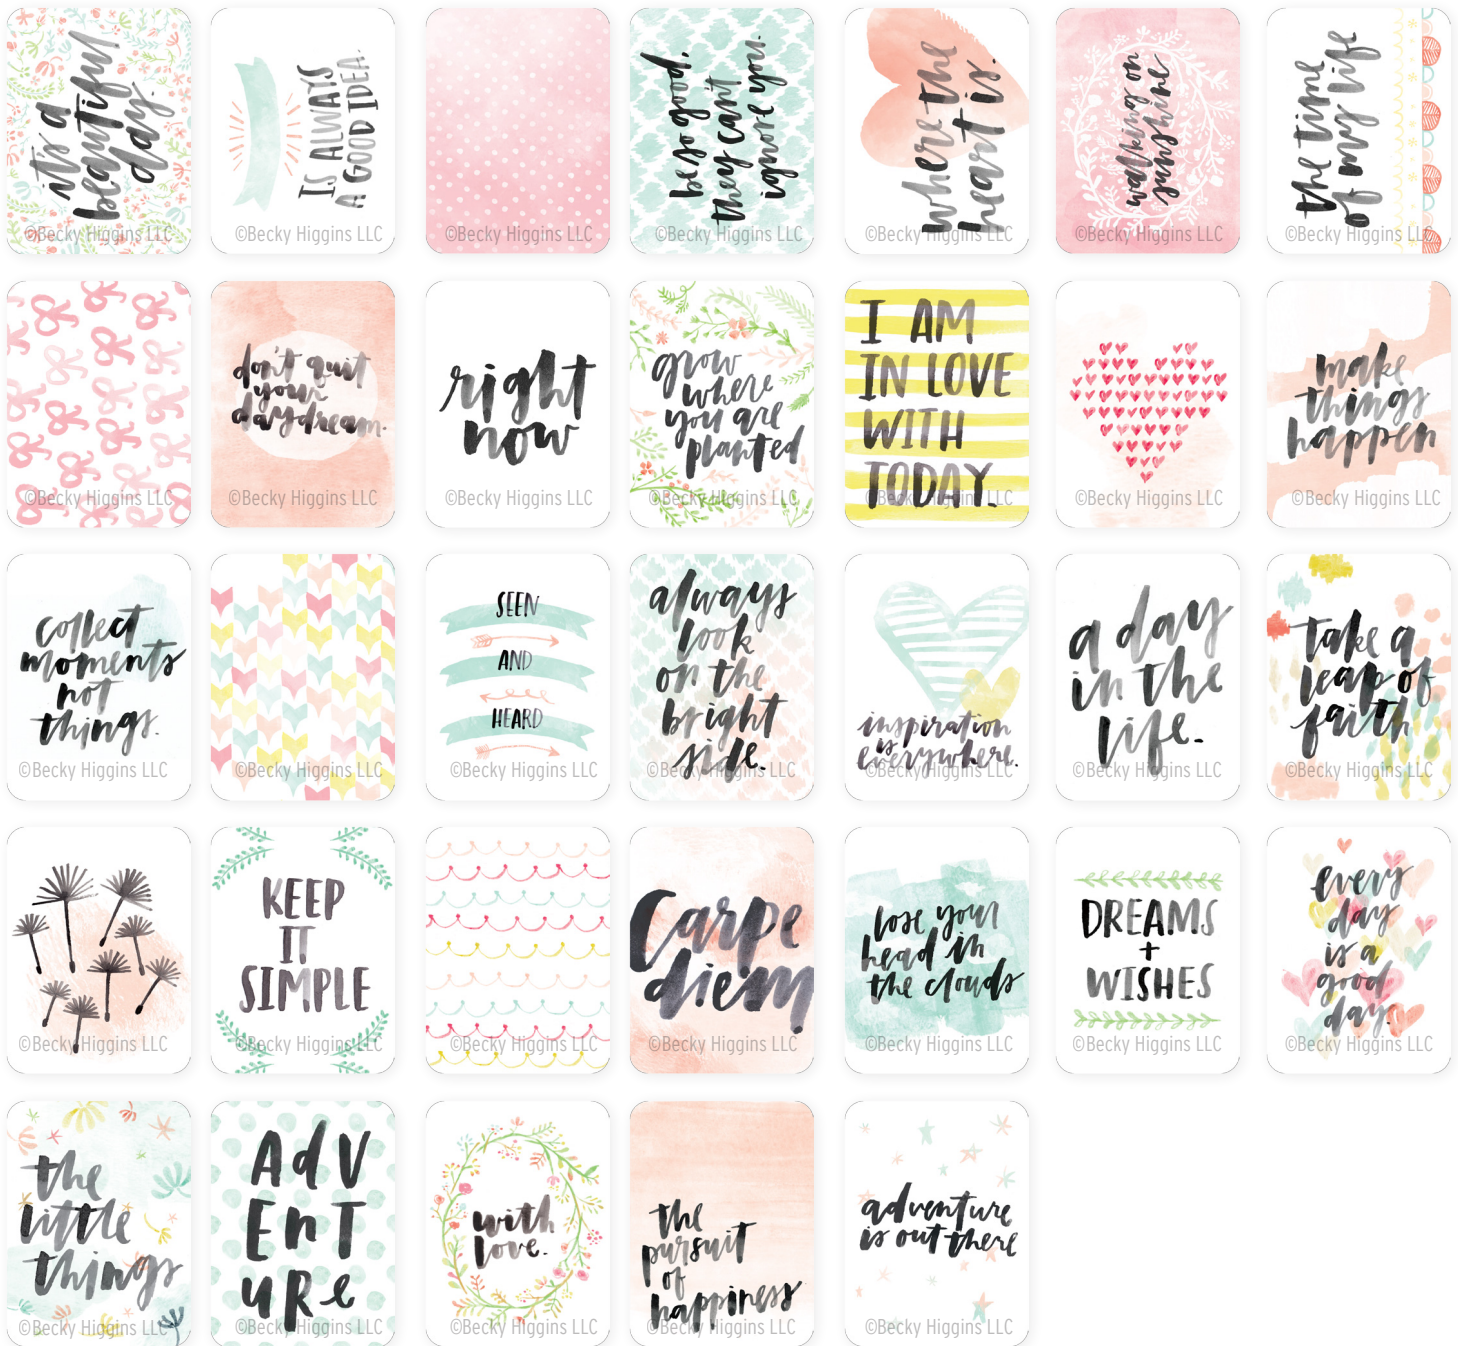 it's a
beautiful
day.
©Becky Higgins LLC
IS ALWAYS
A GOOD IDEA.
©Becky Higgins LLC
©Becky Higgins LLC
be so good,
they can't
ignore you.
©Becky Higgins LLC
where the
heart is.
©Becky Higgins LLC
walking on
sunshine
©Becky Higgins LLC
the time
of my life
©Becky Higgins LLC
©Becky Higgins LLC
don't quit
your
daydream.
©Becky Higgins LLC
right
now
©Becky Higgins LLC
grow
where
you are
planted
©Becky Higgins LLC
I AM
IN LOVE
WITH
TODAY.
©Becky Higgins LLC
©Becky Higgins LLC
make
things
happen
©Becky Higgins LLC
collect
moments
not
things.
©Becky Higgins LLC
©Becky Higgins LLC
SEEN
AND
HEARD
©Becky Higgins LLC
always
look
on the
bright
side.
©Becky Higgins LLC
inspiration
is
everywhere.
©Becky Higgins LLC
a day
in the
life.
©Becky Higgins LLC
take a
leap of
faith
©Becky Higgins LLC
©Becky Higgins LLC
KEEP
IT
SIMPLE
©Becky Higgins LLC
©Becky Higgins LLC
Carpe
diem
©Becky Higgins LLC
lose your
head in
the clouds
©Becky Higgins LLC
DREAMS
+
WISHES
©Becky Higgins LLC
every
day
is a
good
day.
©Becky Higgins LLC
the
little
things
©Becky Higgins LLC
AdV
EnT
uRe
©Becky Higgins LLC
with
love.
©Becky Higgins LLC
the
pursuit
of
happiness
©Becky Higgins LLC
adventure
is out there
©Becky Higgins LLC